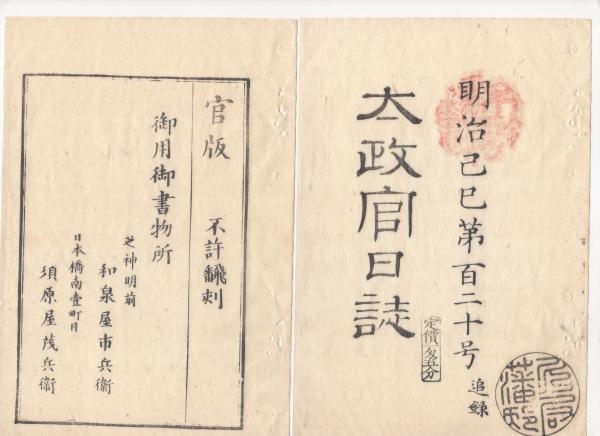 明治己巳第百二十号
追録
太政官日誌
定價
官版 不許飜刻
御用御書物所
芝神明前
和泉屋市兵衞
日本橋南壹町目
須原屋茂兵衞